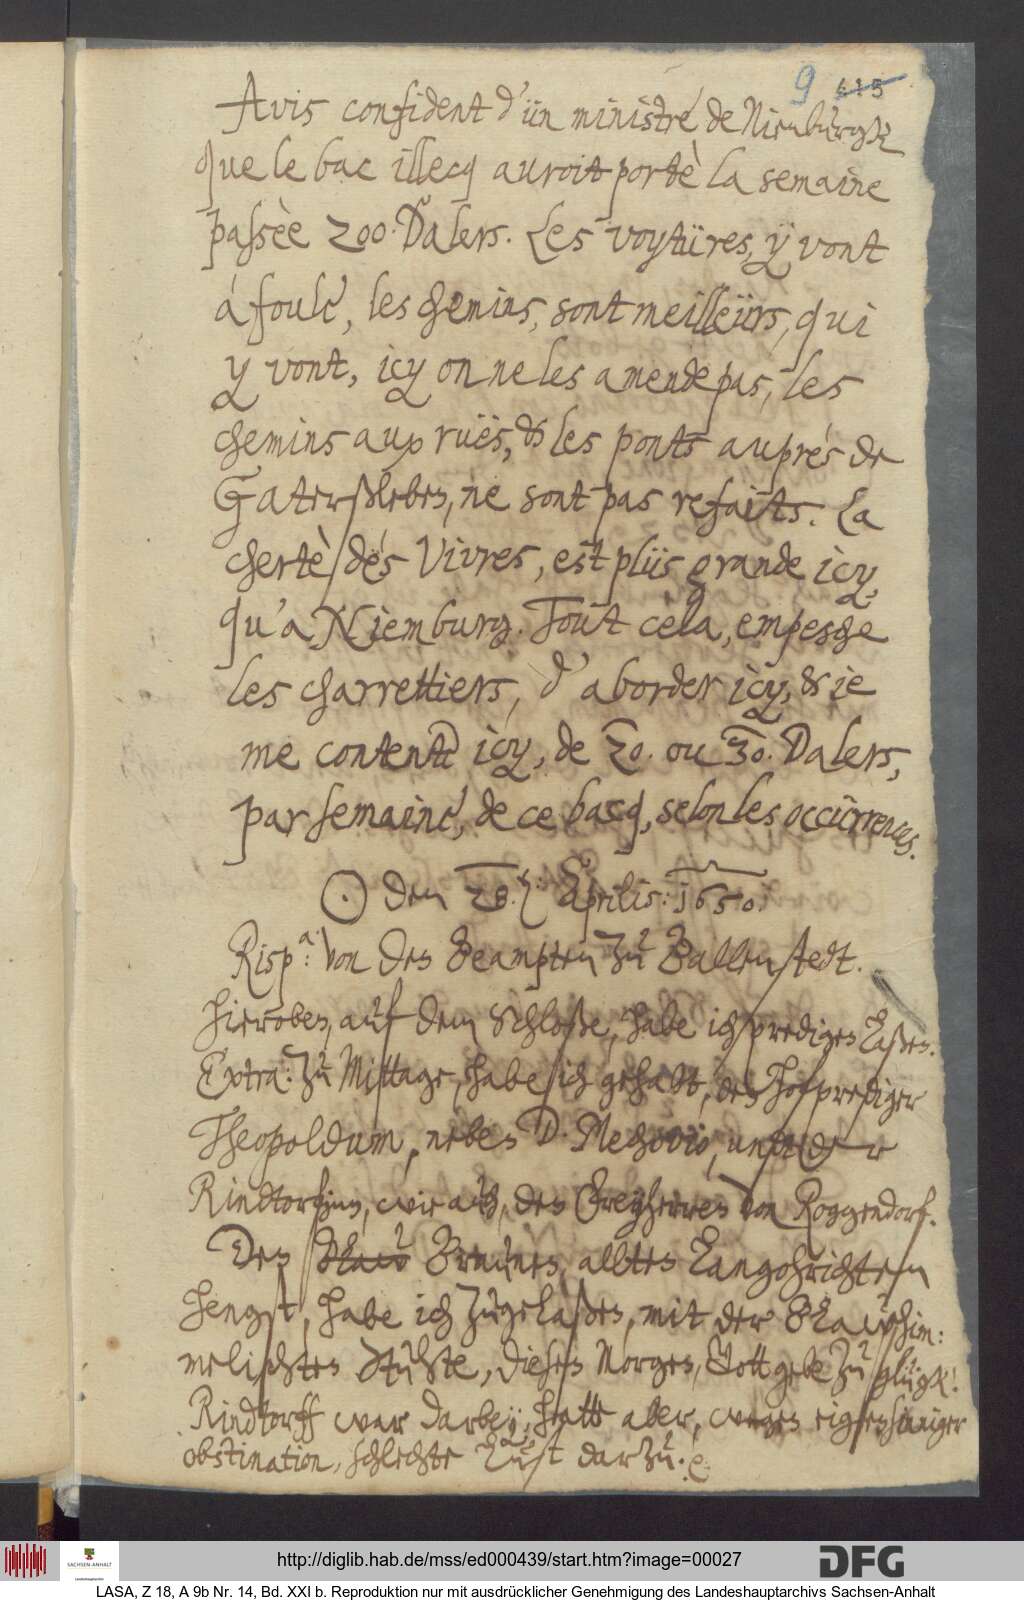 9 415
Avis confident d'ün ministre de Nienbürgk
que le bac illecq auroit portè la semaine
passèe 200. Dalers. Les voytüres, ÿ vont
à foule, les chemins, sont meilleürs, qui
y vont, icy on ne les amende pas, les
chemins aux rüës, & les ponts auprés de
Gaterßleben, ne sont pas refaits. La
chertè des Vivres, est plüs grande icy,
qu'a Niemburg. Tout cela, empesche
les charrettiers, d'aborder icy, & ie
me contente icy, de 20. ou 30. Dalers,
par semaine, de ce bacq, selon les occürrences.
☉ den 28. Aprilis: 1650.
Risp.a: von den Beampten zu Ballenstedt.
Hieroben, auf dem Schloße, habe ich predigen laßen.
Extra: zu Mittage, habe ich gehabt, den Hofprediger
Theopoldum, neben D. Mechovio, und der
Rindtorfinn, wie auch, den Freyherren von Roggendorf.
Den Blaw Braunen, allten Langohrichten
Hengst, habe ich zugelaßen, mit der Blawschim:
melichten Stuhte, diesen Morgen, Gott gebe zu glügk!
Rindtorff war darbeÿ, hatte aber, wegen eigensinniger
obstination, schlechte Lust darzu.
http://diglib.hab.de/mss/ed000439/start.htm?image=00027
SACHSEN-ANHALT
DFG
LASA, Z 18, A 9b Nr. 14, Bd. XXI b. Reproduktion nur mit ausdrücklicher Genehmigung des Landeshauptarchivs Sachsen-Anhalt